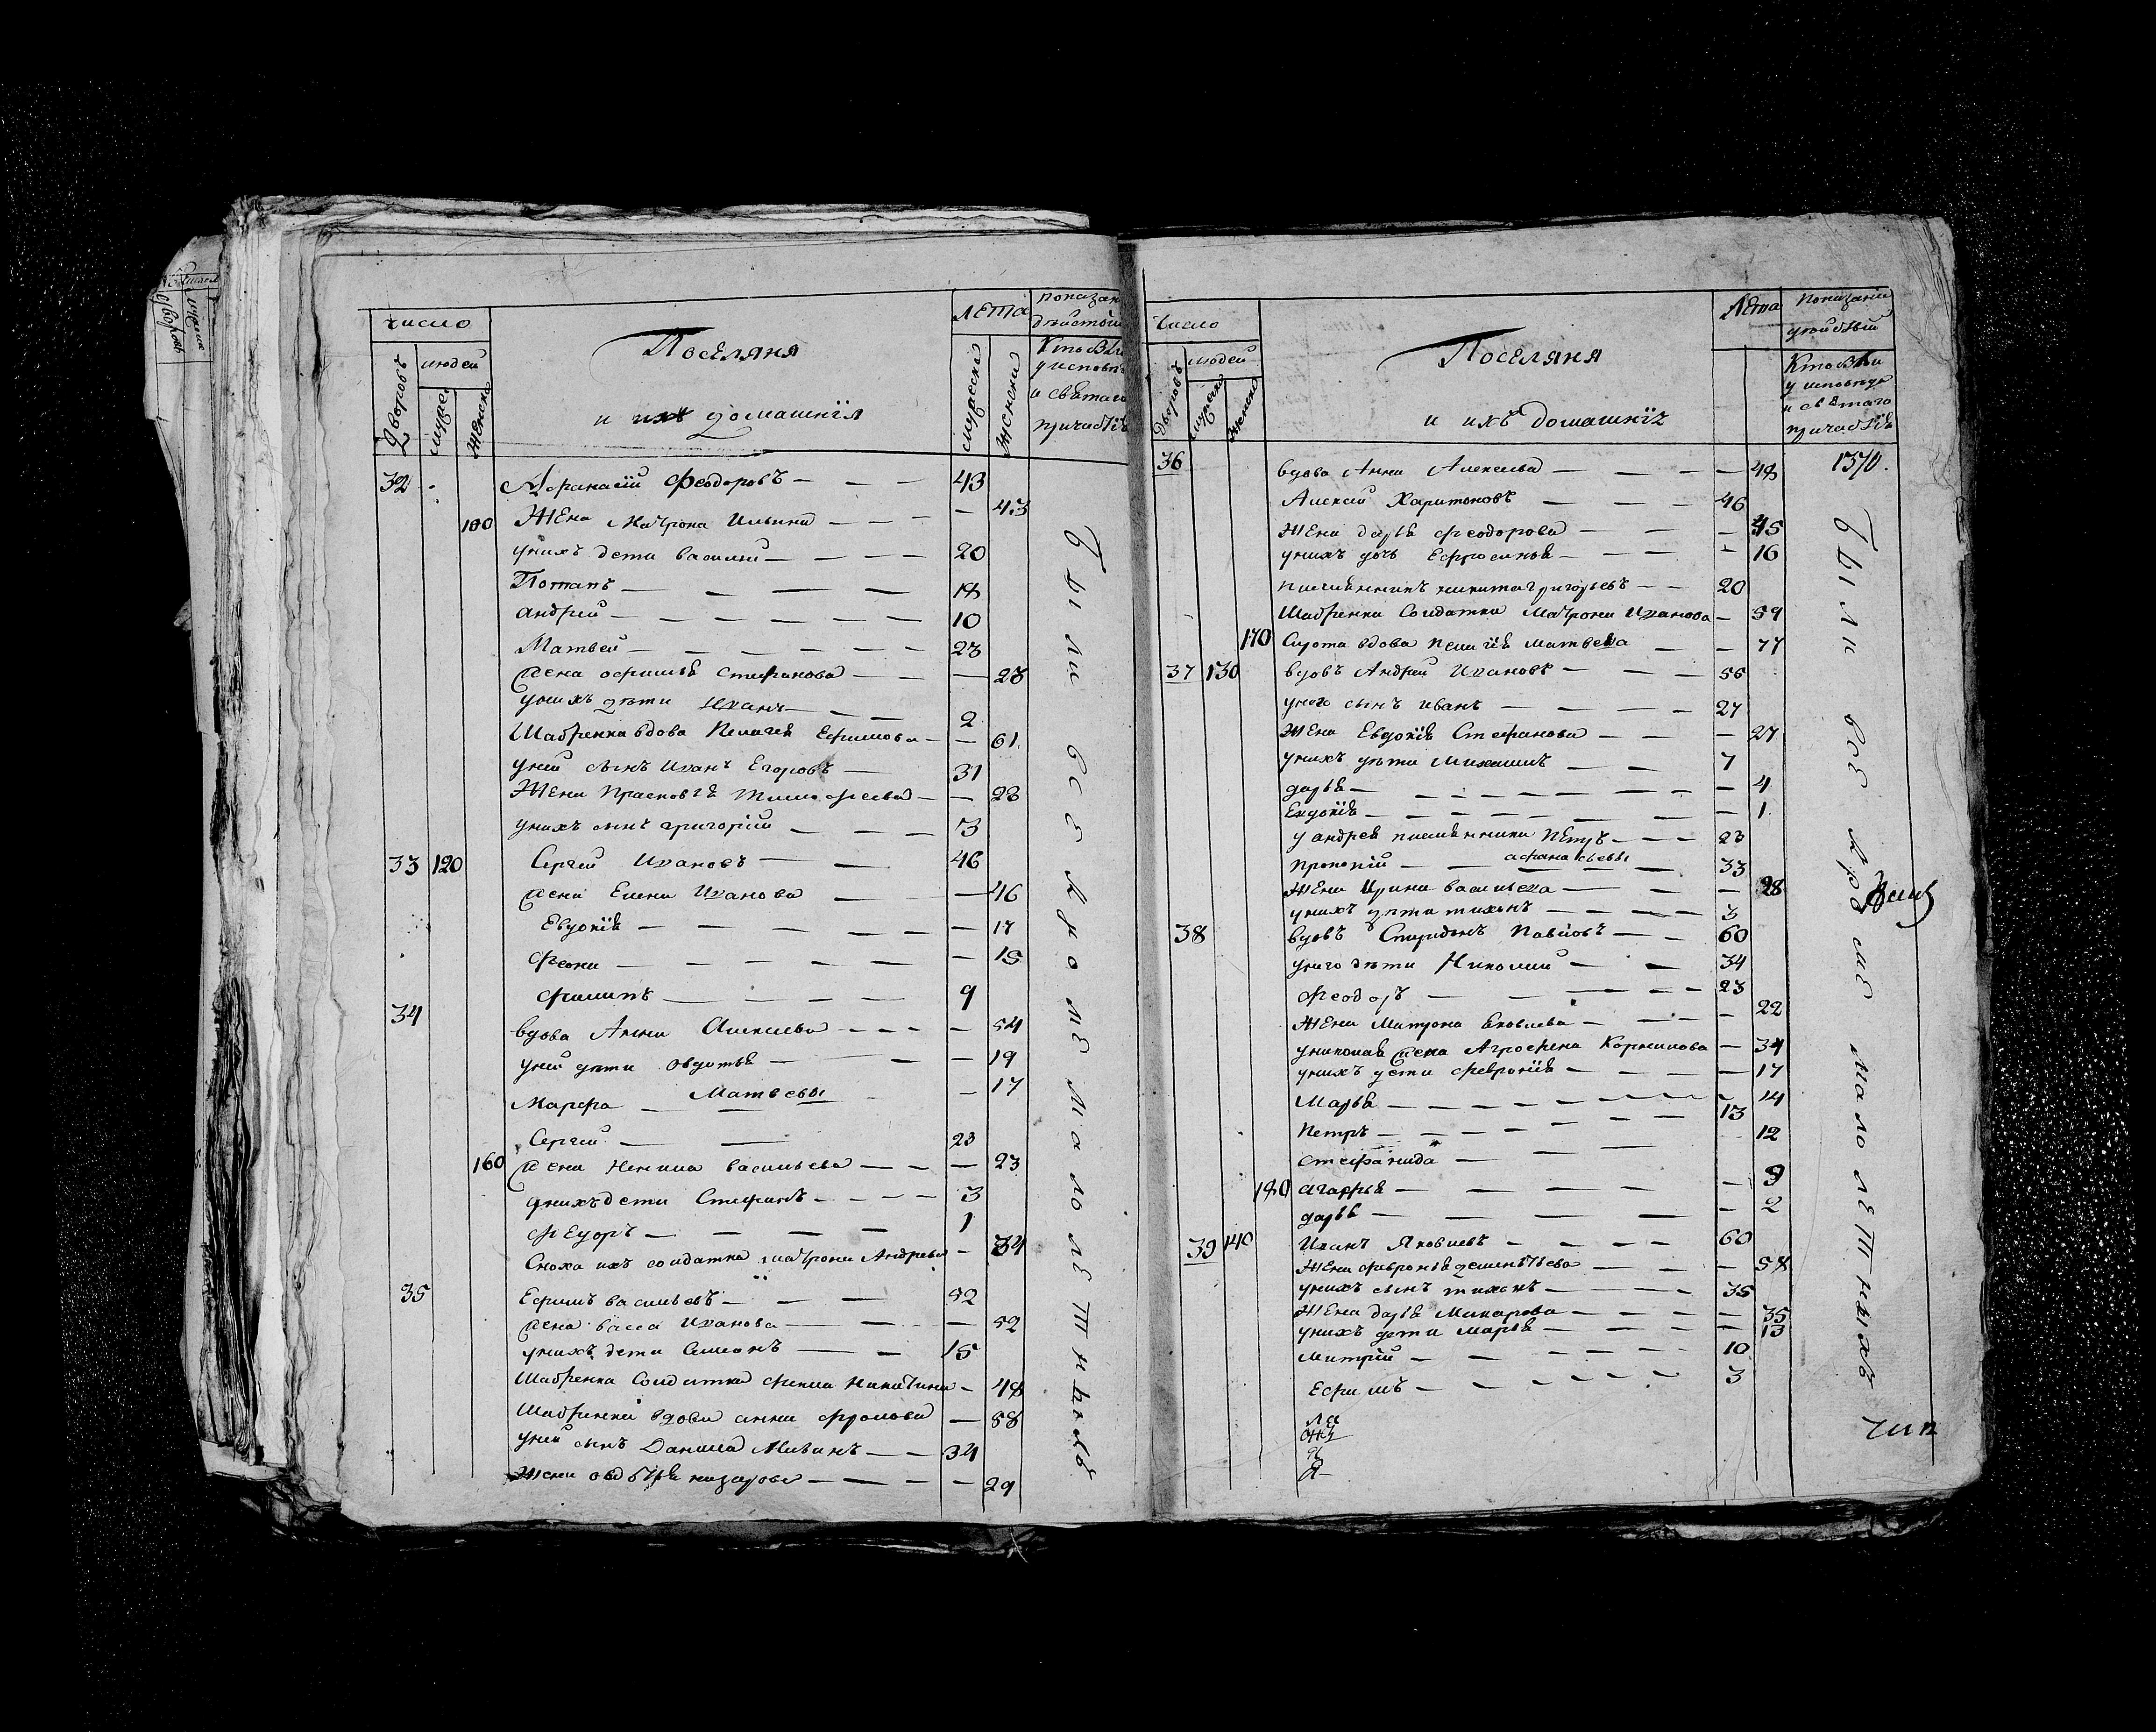 число
Дворовъ
людей
мужеска
женска
Поселяня
и ихъ домашнїя
лета
мужеска
женска
Кто былъ
у исповѣ
и святаго
причастїя
32 Афанасїй Феодоровъ — 43
100 Жена Матрона Ильина — 43
у нихъ дети василий — 20
Потапъ — 18
андрей — 10
Матвей — 23
жена офимья Стефанова — 23
у нихъ дѣти Иванъ — 2
Шабренка вдова Пелагея Ефимова — 61
у ней сынъ Иванъ Егоровъ — 31
Жена Прасковья Тимофеева — 28
у нихъ сынъ григорїй — 3
33 120 Сергей Ивановъ — 46
жена Елена Иванова — 46
Евдокїя — 17
Феона — 15
Филипъ — 9
34
вдова Анна Алексеева — 54
у ней дѣти овдотья — 19
Марфа — Матвевы — 17
Сергей — 23
160 жена Ненила васильева — 23
у нихъ дети Стефанъ — 3
Федоръ — 1
Сноха ихъ солдатка матрона Андреева — 34
35 Ефимъ васильевъ — 52
жена васса Иванова — 52
у нихъ дети Симионъ — 15
Шабренка Солдатка Фекла Никитина — 48
Шабренка вдова анна Фролова — 58
у ней сынъ Данила — 34
Жена овдотья назарова — 29
Были все кроме малолетныхъ
Число
дворовъ
людей
мужеска
женска
Поселяня
и ихъ домашнїя
Лета
Кто были
у исповеди
и святаго
причастїя
36 вдова Анна Алексеева — 48 1370.
Алексей Харитоновъ — 46
Жена дарья феодорова — 45
у нихъ дочь Ефросинья — 16
племянникъ никита григорьевъ — 20
Шабренка Солдатка Матрона Иванова — 59
170 Сирота вдова Пелагея Матвева — 77
37 130 вдовъ Андрей Ивановъ — 56
у него сынъ иванъ — 27
Жена Евдокїя Стефанова — 27
у нихъ дѣти Михаилъ — 7
дарья — 4
Евдокїя — 1
у андрея племянники Пётръ — 23
Прокопїй — афанасьевы — 33
Жена Ирина васильева — 28
у нихъ дѣти тихонъ — 3
38 вдовъ Спиридонъ Павловъ — 60
у него дѣти Николай — 34
Феодоръ — 23
Жена Матрона Яковлева — 22
у николая жена Агрофена Корнилова — 34
у нихъ дети феврониїя — 17
Марья — 14
Петръ — 13
Стефанида — 12
180 агафья — 9
дарья — 2
39 140 Иванъ Яковлевъ — 60
Жена февронья дементьева — 58
у нихъ сынъ тихонъ — 35
Жена дарья Макарова — 35
у нихъ дети Марья — 13
митрїй — 10
Ефимъ — 3
Были все кроме малолетныхъ